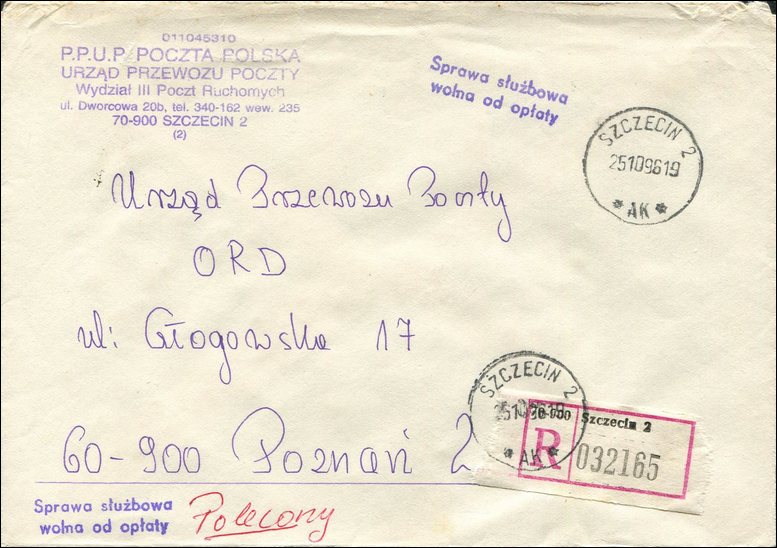 011045310
P.P.U.P. POCZTA POLSKA
URZĄD PRZEWOZU POCZTY
Wydział III Poczt Ruchomych
ul. Dworcowa 20b, tel. 340-162 wew. 235
70-900 SZCZECIN 2
(2)
Sprawa służbowa
wolna od opłaty
SZCZECIN 2
25109619
* AK *
Urząd Przewozu Poczty
ORD
ul. Głogowska 17
60-900 Poznań 2
SZCZECIN 2
25109619
* AK *
70-900 Szczecin 2
R 032165
Sprawa służbowa
wolna od opłaty
Polecony